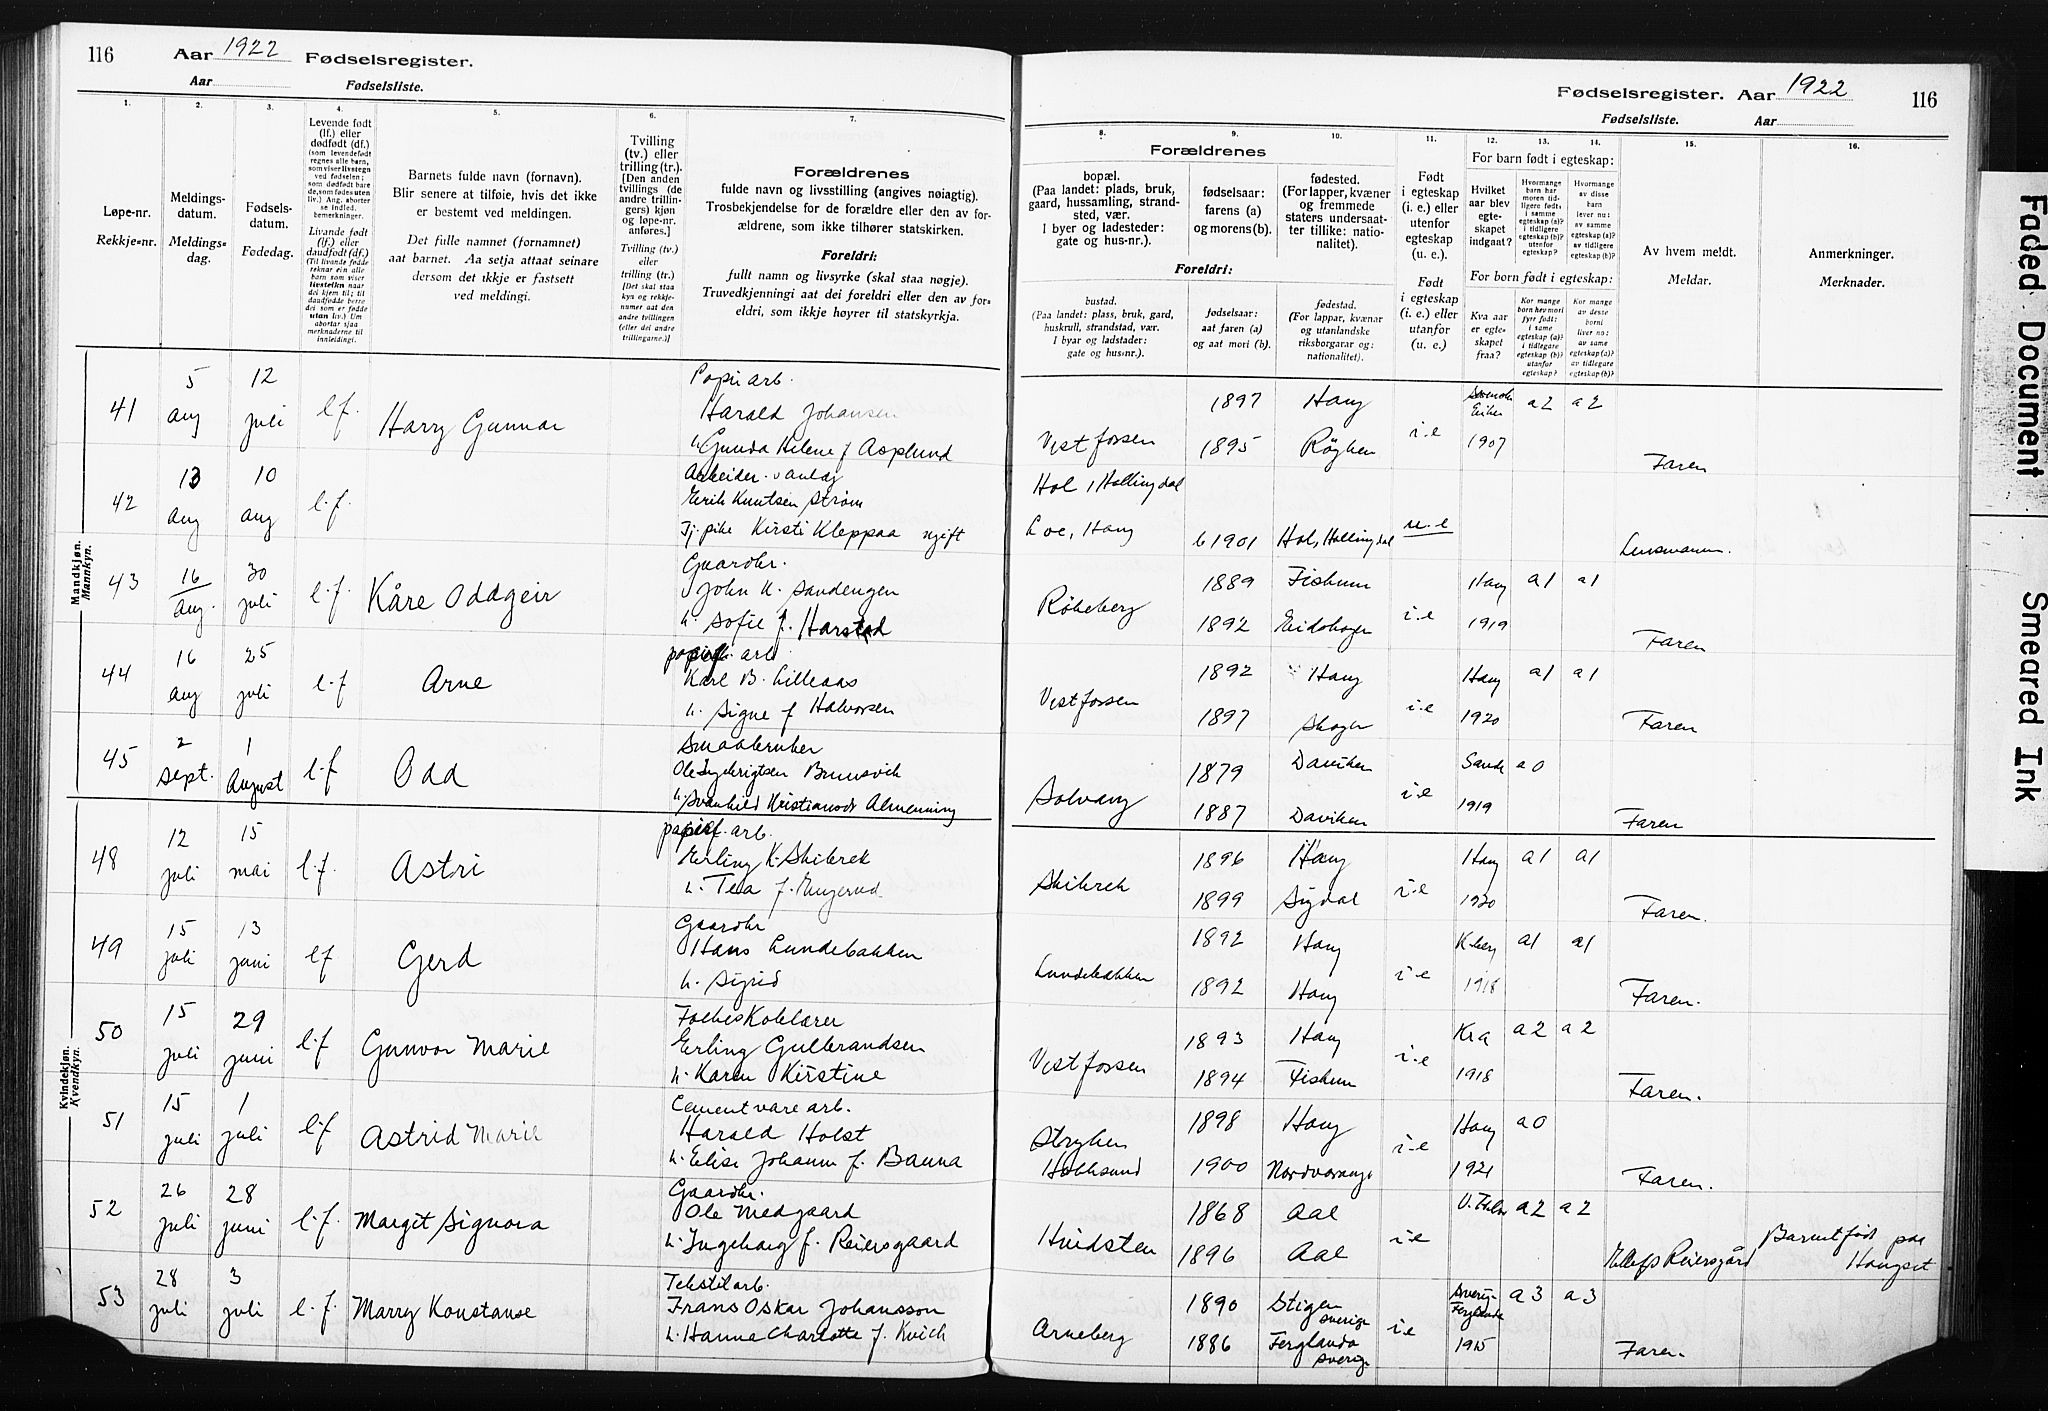 116 Aar 1922 Fødselsregister.
Aar Fødselsliste.
Fødselsregister. Aar 1922 116
Fødselsliste. Aar
1. 2. 3. 4. 5. 6. 7.
8. 9. 10. 11. 12. 13. 14. 15. 16.
Løpe-nr.
Rekkje-nr.
Meldings-
datum.
Meldings-
dag.
Fødsels-
datum.
Fødedag.
Levende født
(lf.) eller
dødfødt (df.)
Livande født
(lf.) eller
daudfødt (df.)
Barnets fulde navn (fornavn).
Blir senere at tilføie, hvis det ikke
er bestemt ved meldingen.
Det fulle namnet (fornamnet)
aat barnet. Aa setja attaat seinare
dersom det ikkje er fastsett
ved meldingi.
Tvilling
(tv.) eller
trilling (tr.).
[Den anden
tvillings (de
andre trillin-
gers) kjøn
og løpe-nr.
anføres.]
Tvilling (tv.)
eller
trilling (tr.)
[Det skal staa
kyn og rekkje-
numer aat den
andre tvillingen
(eller dei andre
trillingarne.)]
Forældrenes
fulde navn og livsstilling (angives nøiagtig).
Trosbekjendelse for de forældre eller den av for-
ældrene, som ikke tilhører statskirken.
Foreldri:
fullt namn og livsyrke (skal staa nøgje).
Truvedkjenningi aat dei foreldri eller den av for-
eldri, som ikkje høyrer til statskyrkja.
Forældrenes
bopæl.
(Paa landet: plads, bruk,
gaard, hussamling, strand-
sted, vær.
I byer og ladesteder:
gate og hus-nr.).
fødselsaar:
farens (a)
og morens (b).
fødested.
(For lapper, kvæner
og fremmede
staters undersaat-
ter tillike: natio-
nalitet).
Foreldri:
bustad.
(Paa landet: plass, bruk, gard,
huskrull, strandstad, vær.
I byar og ladstader:
gate og hus-nr.).
fødselsaar:
aat faren (a)
og aat mori (b).
fødestad.
(For lappar, kvænar
og utanlandske
riksborgarar og:
nationalitet).
Født
i egteskap
(i. e.) eller
utenfor
egteskap
(u. e.).
Født
i egteskap
(i. e.) eller
utanfor
(u. e.)
For barn født i egteskap:
Hvilket
aar blev
egte-
skapet
indgaat?
For born født i egteskap:
Kva aar
er egte-
skapet
fraa?
Av hvem meldt.
Meldar.
Anmerkninger.
Merknader.
Mandkjøn.
Mannkyn.
41 5 aug 12 juli l.f. Harry Gunnar
Papir arb.
Harald Johansen
h. Gunda Helene f Asplund
Vestfossen 1897 Haug i.e Eiker a2 a2
1895 Røyken 1907 Faren
42 13 aug 10 aug l.f.
Arbeider
Erik Knutsen Strøm
Tj. pike Kirsti Kleppaa ugift
Hol, Hallingdal
Loe, Haug b 1901 Hol, Hallingdal u.e Lensmannen.
43 16 aug. 30 juli l.f. Kåre Oddgeir
Gaardbr.
John K. Sandengen
h. Sofie f. Harstad
Røkeberg 1889 Fiskum i.e Haug a1 a1
1892 1919 Faren
44 16 aug 25 juli l.f Arne
papirf. arb
Karl B. Lilleaas
h. Signe f Halvorsen
Vestfossen 1892 Haug i.e Haug a1 a1
1897 Skoger 1920 Faren
45 2 sept. 1 August l.f Odd
Smaabruker
Ole Ingebrigtsen Brunsvik
h. Svanhild Kristiansdr Almenning
Solvang 1879 Daviken i.e Sande a0
1887 Daviken 1919 Faren
Kvindekjøn.
Kvendkyn.
48 12 juli 15 mai l.f. Astri
papirf. arb.
Erling K. Skibrek
h. Tea f.
Skibrek 1896 Haug i.e Haug a1 a1
1899 Sigdal 1920 Faren.
49 15 juli 13 juni lf Gerd
Gaardbr
Hans Lundebakken
h. Sigrid
Lundebakken 1892 Haug i.e K.berg a1 a1
1892 Haug 1918 Faren.
50 15 juli 29 juni l.f Gunvor Marie
Folkeskolelærer
Erling Gulbrandsen
h. Karen Kirstine
Vestfossen 1893 Haug i.e Kra a2 a2
1894 Fiskum 1918 Faren.
51 15 juli 1 juli l.f Astrid Marie
Cementvarearb.
Harald Holst
h. Elise Johanne f. Banna
Stryken 1898 Haug i.e Haug a0
Hokksund 1900 Nordvaranger 1921 Faren.
52 26 juli 28 juni l.f. Margit Signora
Gaardbr.
Ole Medgaard
h. Ingeborg f. Reiersgaard
Hvidsten 1868 Aal i.e a2 a2
1896 Aal Ellef Reiersgård Barnet født paa
Haugset
53 28 juli 3 juli l.f. Marry Konstanse
Tekstilarb.
Frans Oskar Johansson
h. Hanna Charlotte f. Kvick
Arneberg 1890 Stigen Sverige i.e Sverig- Ferglanda a3 a3
1886 Ferglanda Sverig. 1915 Faren.
Faded Document
Smeared Ink